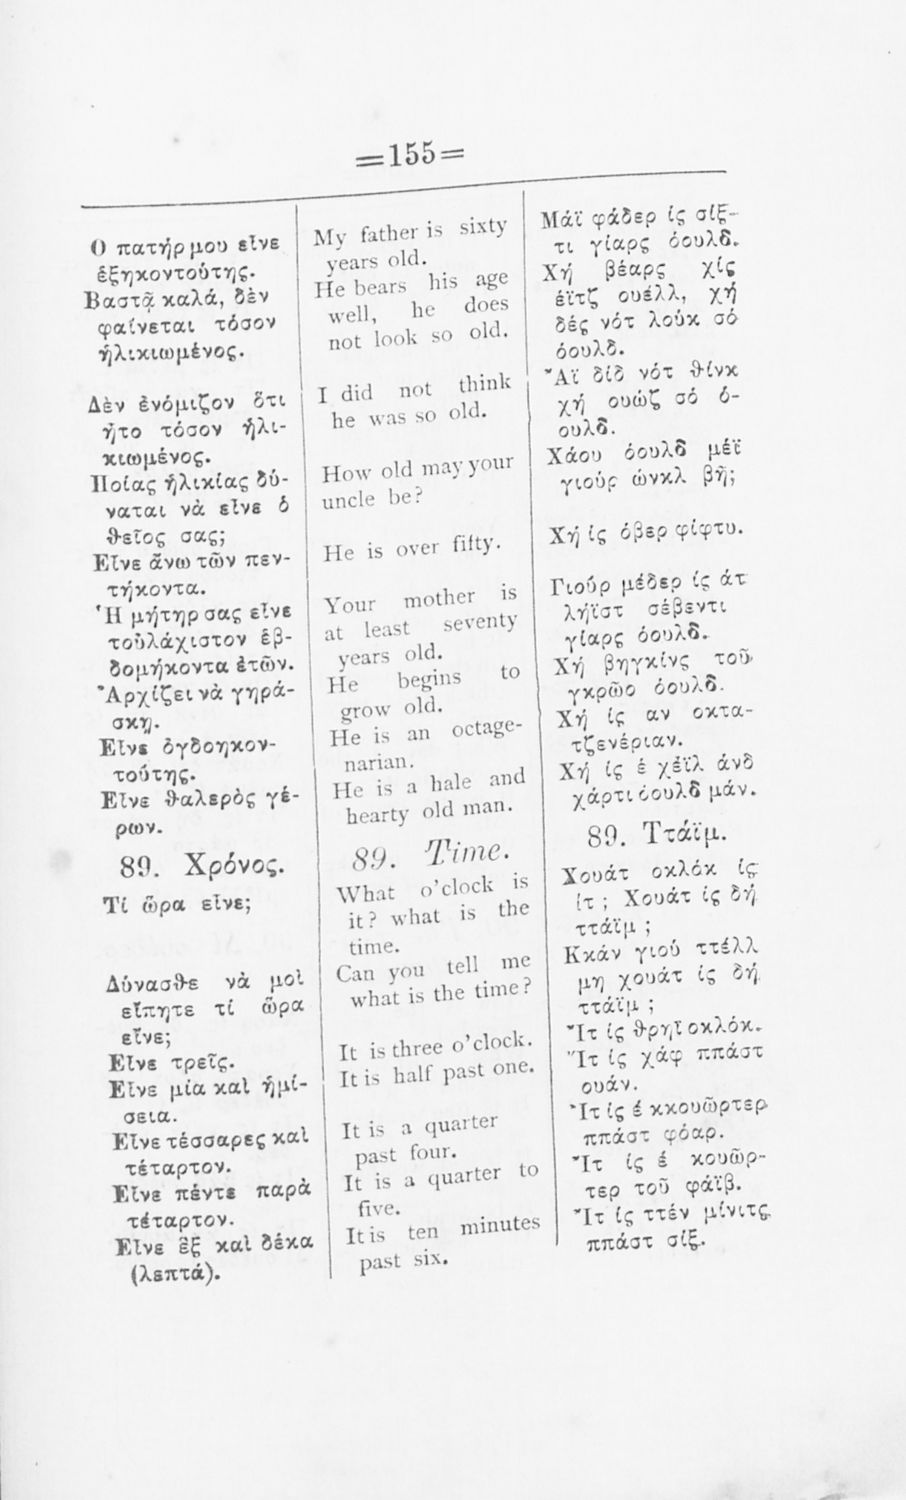 =155=
Ο πατήρ μου εἶνε
ἑξηκοντούτης.
Βαστᾷ καλά, δὲν
φαίνεται τόσον
ἡλικιωμένος.
Δὲν ἐνόμιζον ὅτι
ἦτο τόσον ἡλι-
κιωμένος.
Ποίας ἡλικίας δύ-
ναται νὰ εἶνε ὁ
θεῖος σας;
Εἶνε ἄνω τῶν πεν-
τήκοντα.
Ἡ μήτηρ σας εἶνε
τοὐλάχιστον ἑβ-
δομήκοντα ἐτῶν.
Ἀρχίζει νὰ γηρά-
σκῃ.
Εἶνε ὀγδοηκον-
τούτης.
Εἶνε θαλερὸς γέ-
ρων.
89. Χρόνος.
Τί ὥρα εἶνε;
Δύνασθε νὰ μοὶ
εἴπητε τί ὥρα
εἶνε;
Εἶνε τρεῖς.
Εἶνε μία καὶ ἡμί-
σεια.
Εἶνε τέσσαρες καὶ
τέταρτον.
Εἶνε πέντε παρὰ
τέταρτον.
Εἶνε ἓξ καὶ δέκα
(λεπτά).
My father is sixty
years old.
He bears his age
well, he does
not look so old.
I did not think
he was so old.
How old may your
uncle be?
He is over fifty.
Your mother is
at least seventy
years old.
He begins to
grow old.
He is an octage-
narian.
He is a hale and
hearty old man.
89. Time.
What o'clock is
it? what is the
time.
Can you tell me
what is the time?
It is three o'clock.
It is half past one.
It is a quarter
past four.
It is a quarter to
five.
It is ten minutes
past six.
Μάϊ φάδερ ἰς σίξ-
τι γίαρς όουλδ.
Χή βέαρς χίς
έϊτζ ουέλλ, χή
δές νότ λούκ σό
όουλδ.
Ἄϊ δίδ νότ θίνκ
χή ουώζ σό ό-
ουλδ.
Χάου όουλδ μέϊ
γιούρ ώνκλ βῆ;
Χή ίς όβερ φίφτυ.
Γιούρ μέδερ ίς άτ
λήϊστ σέβεντι
γίαρς όουλδ.
Χή βηγκίνς τοῦ
γκρῶο όουλδ.
Χή ίς αν οκτα-
τζενέριαν.
Χή ίς έ χέϊλ άνδ
χάρτι όουλδ μάν.
89. Ττάϊμ.
Χουάτ οκλόκ ίς
ίτ ; Χουάτ ίς δή
ττάϊμ ;
Κκάν γιού ττέλλ
μη χουάτ ίς δή
ττάϊμ ;
Ἴτ ίς θρηῖ οκλόκ.
Ἴτ ίς χάφ ππάστ
ουάν.
Ἴτ ίς έ κκουῶρτερ
ππάστ φόαρ.
Ἴτ ίς έ κουῶρ-
τερ τοῦ φάϊβ.
Ἴτ ίς ττέν μίνιτς
ππάστ σίξ.